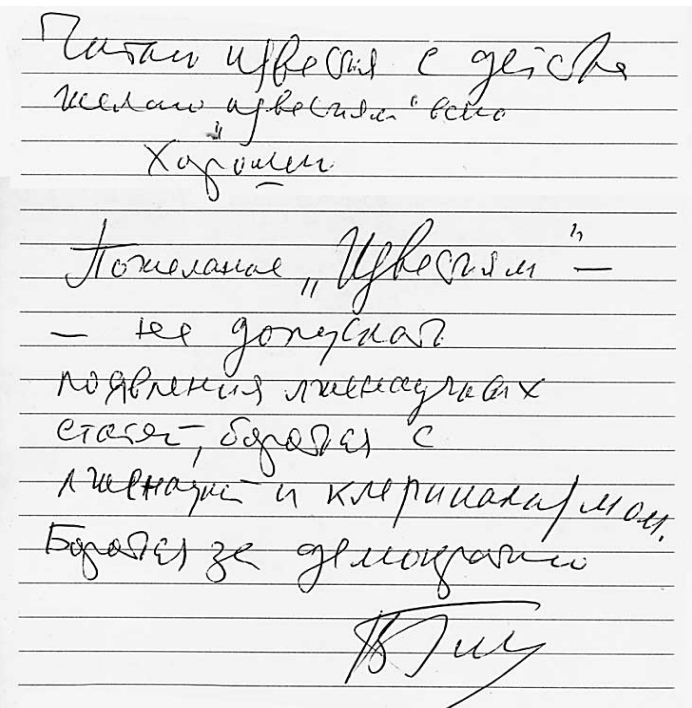 Читаю известия с детства
желаю "известиям" всего
хорошего
Пожелание „Известиям" –
– не допускать
появления лженаучных
статей, бороться с
лженаукой и клерикализмом.
Бороться за демократию